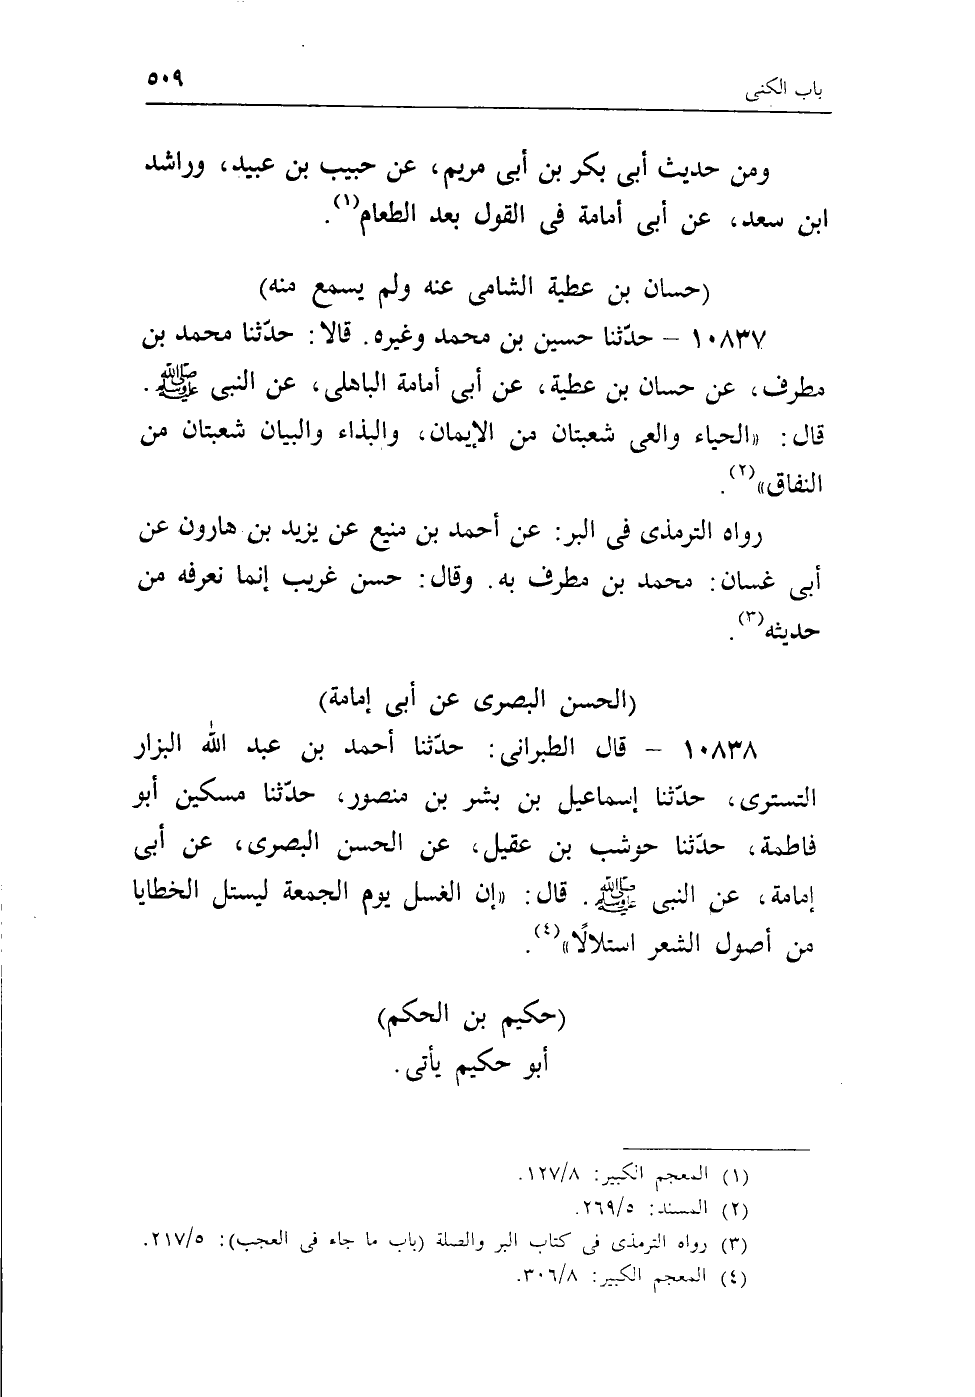 باب الكنى
٥٠٩
ومن حديث أبى بكر بن أبى مريم، عن حبيب بن عبيد، وراشد
ابن سعد، عن أبى أمامة فى القول بعد الطعام(١).
(حسان بن عطية الشامى عنه ولم يسمع منه)
١٠٨٣٧ - حدّثنا حسين بن محمد وغيره. قالا: حدّثنا محمد بن
مطرف، عن حسان بن عطية، عن أبى أمامة الباهلى، عن النبى ﷺ.
قال: «الحياء والعى شعبتان من الإيمان، والبذاء والبيان شعبتان من
النفاق»(٢).
رواه الترمذى فى البر: عن أحمد بن منيع عن يزيد بن هارون عن
أبى غسان: محمد بن مطرف به. وقال: حسن غريب إنما نعرفه من
حديثه(٣).
(الحسن البصرى عن أبى إمامة)
١٠٨٣٨ - قال الطبرانى: حدّثنا أحمد بن عبد الله البزار
التسترى، حدّثنا إسماعيل بن بشر بن منصور، حدّثنا مسكين أبو
فاطمة، حدّثنا حوشب بن عقيل، عن الحسن البصرى، عن أبى
إمامة، عن النبى ﷺ. قال: «إن الغسل يوم الجمعة ليستل الخطايا
من أصول الشعر استلالًا»(٤).
(حكيم بن الحكم)
أبو حكيم يأتى.
(١) المعجم الكبير: ١٢٧/٨.
(٢) المسند: ٢٦٩/٥.
(٣) رواه الترمذى فى كتاب البر والصلة (باب ما جاء فى العجب): ٢١٧/٥.
(٤) المعجم الكبير: ٣٠٦/٨.